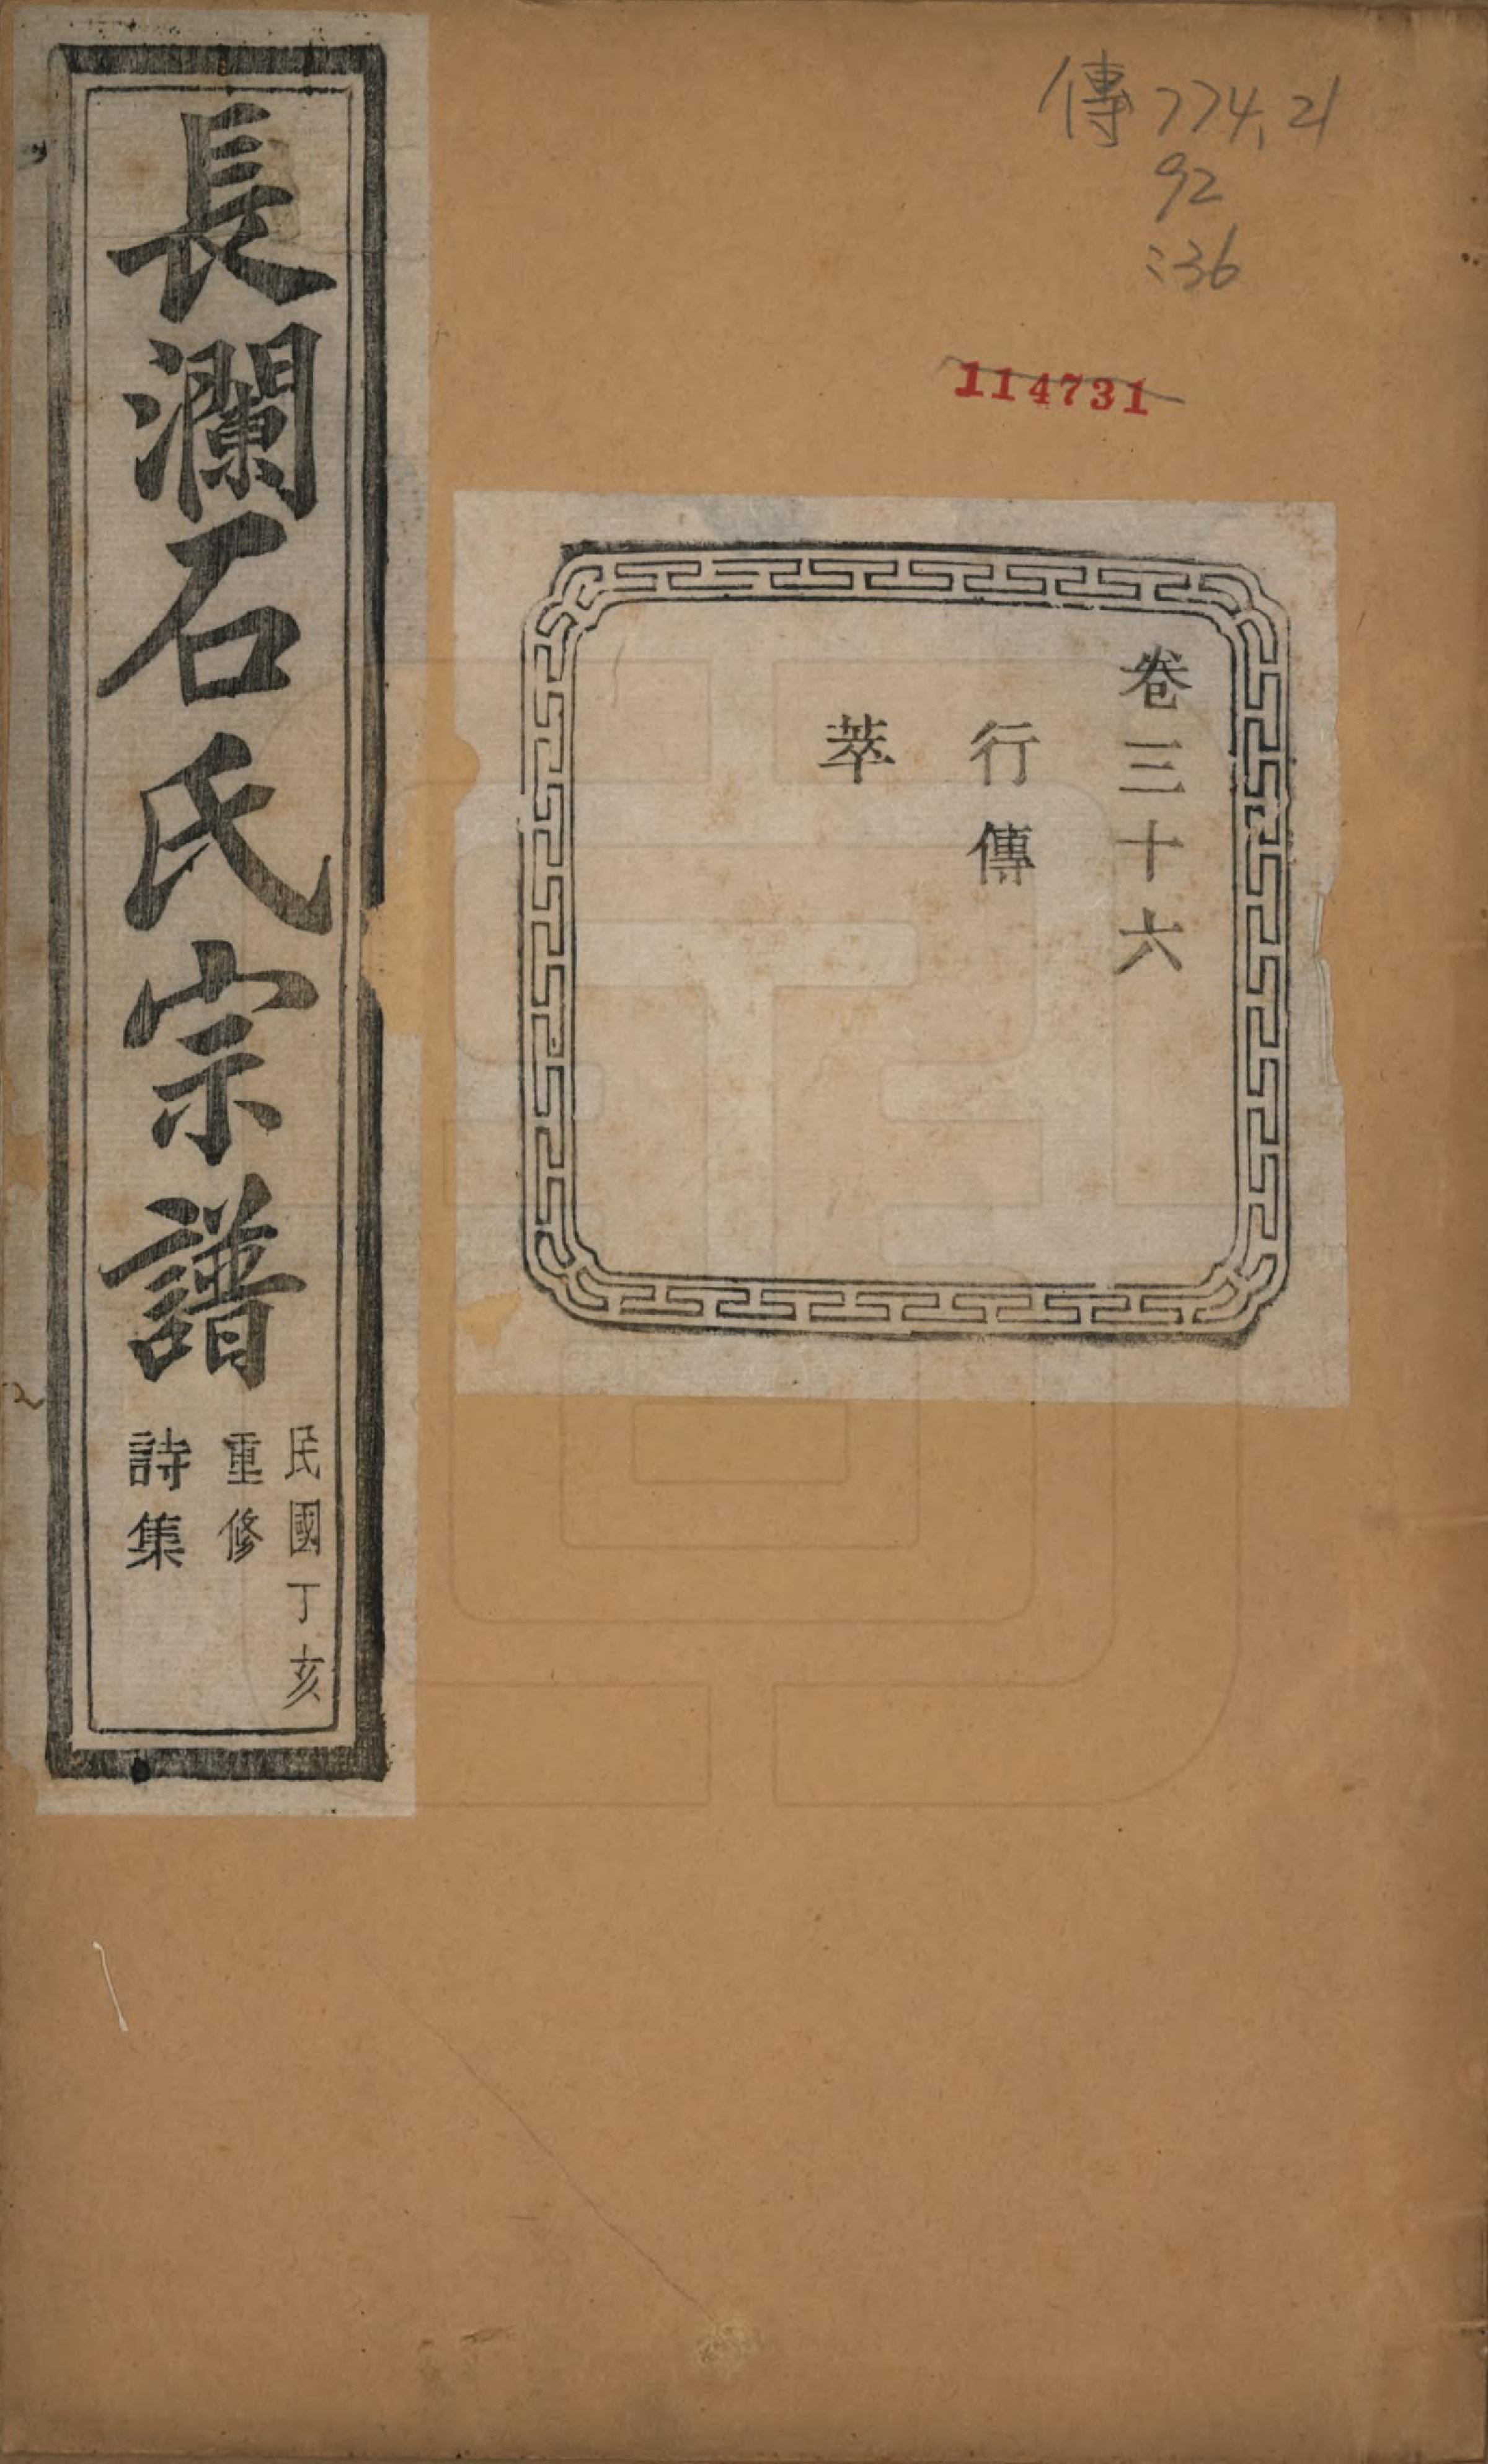 傳774.21
92
:36
114731
卷三十六
行傳
萃
長瀾石氏宗譜
民國丁亥
重修
詩集